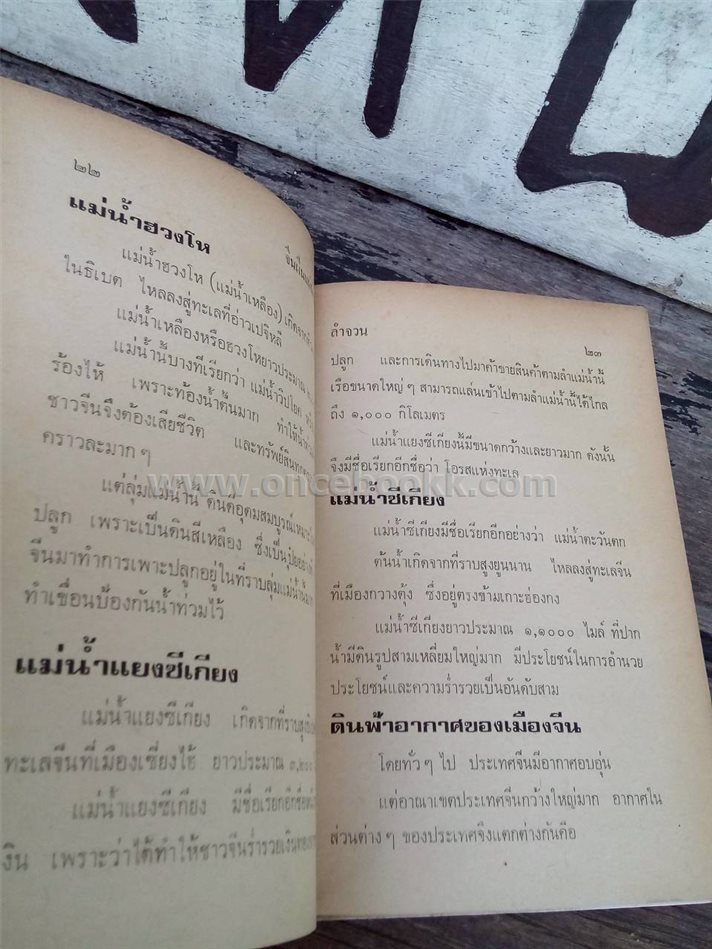 ๒๒
แม่น้ำฮวงโห
แม่น้ำฮวงโห (แม่น้ำเหลือง) เกิดจาก
ในธิเบต ไหลลงสู่ทะเลที่อ่าวเปจิหลี
แม่น้ำเหลืองหรือฮวงโหยาวประมาณ
แม่น้ำนี้บางทีเรียกว่า แม่น้ำวิปโยค
ร้องไห้ เพราะท้องน้ำตื้นมาก ทำให้น้ำ
ชาวจีนจึงต้องเสียชีวิต และทรัพย์สิน
คราวละมากๆ
แต่ลุ่มแม่น้ำนี้ ดินดีอุดมสมบูรณ์
ปลูก เพราะเป็นดินสีเหลือง ซึ่งเป็นปุ๋ย
จีนมาทำการเพาะปลูกอยู่ในที่ราบลุ่มแม่น้ำนี้มาก
ทำเขื่อนป้องกันน้ำท่วมไว้
แม่น้ำแยงซีเกียง
แม่น้ำแยงซีเกียง เกิดจากที่ราบสูง
ทะเลจีนที่เมืองเซี่ยงไฮ้ ยาวประมาณ ๓,๒๐๐
แม่น้ำแยงซีเกียง มีชื่อเรียกอีกชื่อ
เงิน เพราะว่าได้ทำให้ชาวจีนร่ำรวยเงินทอง
ลำจวน
๒๓
ปลูก และการเดินทางไปมาค้าขายสินค้าตามลำแม่น้ำนี้
เรือขนาดใหญ่ๆ สามารถแล่นเข้าไปตามลำแม่น้ำนี้ได้ไกล
ถึง ๑,๐๐๐ กิโลเมตร
แม่น้ำแยงซีเกียงนี้มีขนาดกว้างและยาวมาก ดังนั้น
จึงมีชื่อเรียกอีกชื่อว่า โอรสแห่งทะเล
www.oncebookk.com
แม่น้ำซีเกียง
แม่น้ำซีเกียงมีชื่อเรียกอีกอย่างว่า แม่น้ำตะวันตก
ต้นน้ำเกิดจากที่ราบสูงยูนนาน ไหลลงสู่ทะเลจีน
ที่เมืองกวางตุ้ง ซึ่งอยู่ตรงข้ามเกาะฮ่องกง
แม่น้ำซีเกียงยาวประมาณ ๑,๑๐๐๐ ไมล์ ที่ปาก
น้ำมีดินรูปสามเหลี่ยมใหญ่มาก มีประโยชน์ในการอำนวย
ประโยชน์และความร่ำรวยเป็นอันดับสาม
ดินฟ้าอากาศของเมืองจีน
โดยทั่วๆ ไป ประเทศจีนมีอากาศอบอุ่น
แต่อาณาเขตประเทศจีนกว้างใหญ่มาก อากาศใน
ส่วนต่างๆ ของประเทศจึงแตกต่างกันคือ